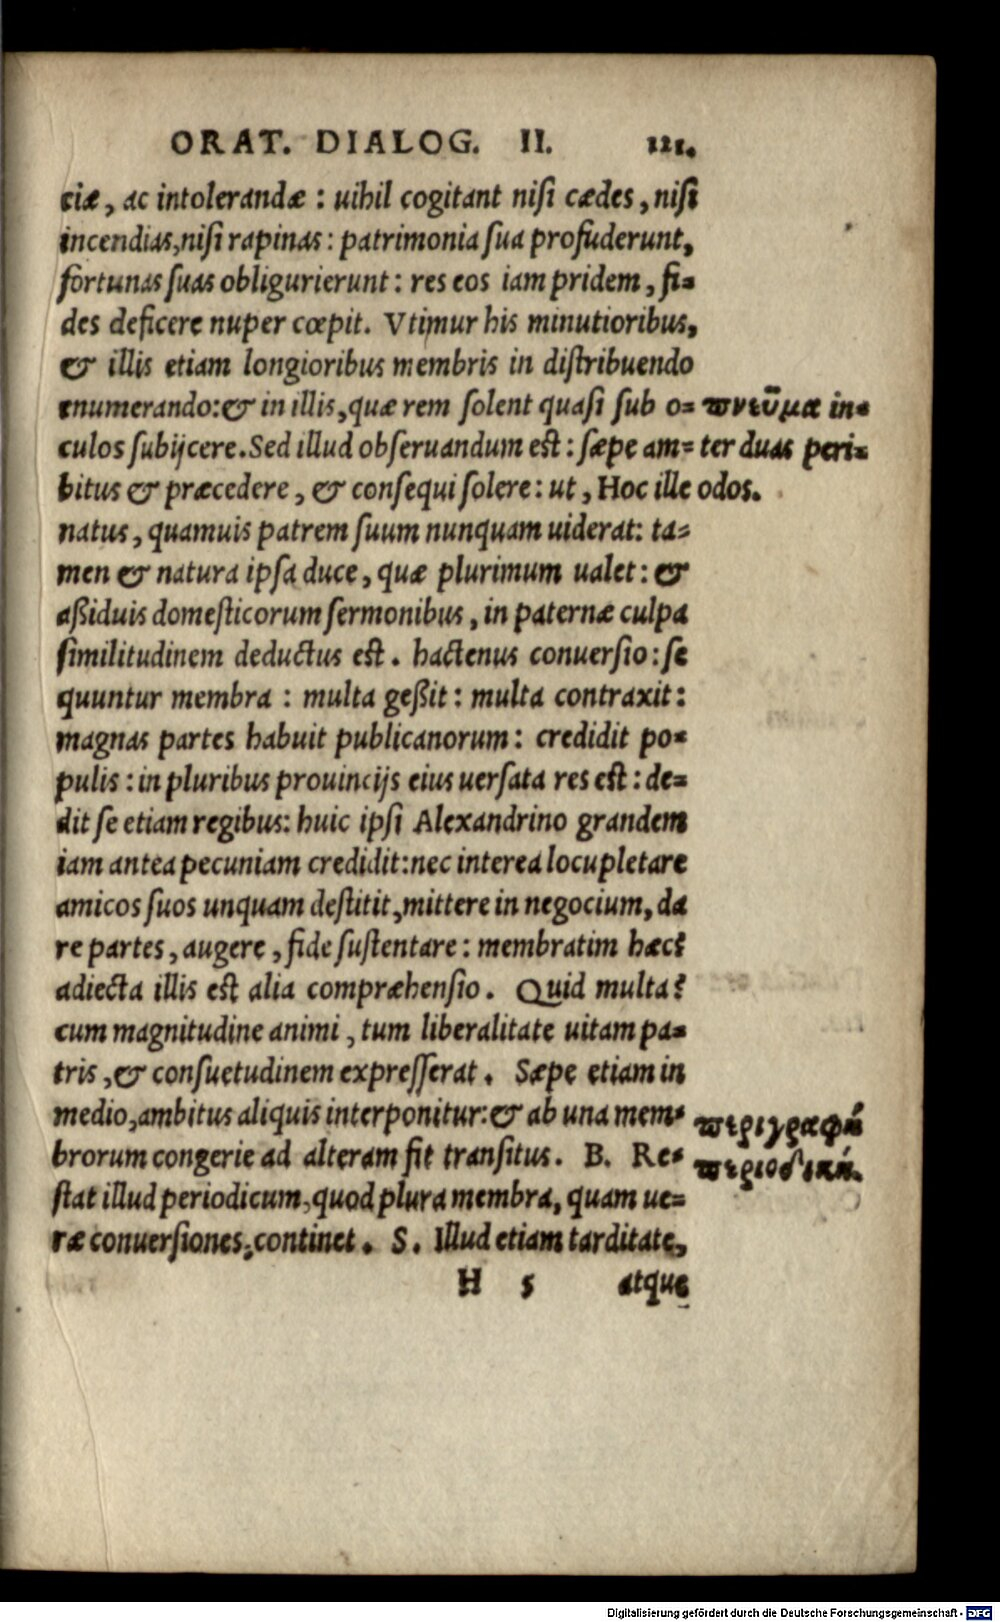 ORAT. DIALOG. II. 121.
ciæ, ac intolerandæ : uihil cogitant nisi cædes, nisi
incendias, nisi rapinas : patrimonia sua profuderunt,
fortunas suas obligurierunt : res eos iam pridem, fi=
des deficere nuper cœpit. Vtimur his minutioribus,
& illis etiam longioribus membris in distribuendo
enumerando: & in illis, quæ rem solent quasi sub o=
culos subijcere. Sed illud obseruandum est : sæpe am=
bitus & præcedere, & consequi solere : ut, Hoc ille
natus, quamuis patrem suum nunquam uiderat: ta=
men & natura ipsa duce, quæ plurimum ualet : &
aßiduis domesticorum sermonibus, in paternæ culpa
similitudinem deductus est. hactenus conuersio : se
quuntur membra : multa geßit : multa contraxit :
magnas partes habuit publicanorum : credidit po=
pulis : in pluribus prouincijs eius uersata res est : de=
dit se etiam regibus: huic ipsi Alexandrino grandem
iam antea pecuniam credidit: nec interea locupletare
amicos suos unquam destitit, mittere in negocium, da
re partes, augere, fide sustentare : membratim hæc:
adiecta illis est alia compræhensio. Quid multa?
cum magnitudine animi, tum liberalitate uitam pa=
tris, & consuetudinem expresserat. Sæpe etiam in
medio, ambitus aliquis interponitur: & ab una mem=
brorum congerie ad alteram fit transitus. B. Re=
stat illud periodicum, quod plura membra, quam ue=
ræ conuersiones, continet. S. Illud etiam tarditate,
H 5 atque
πνεῦμα in=
ter duas peri=
odos.
περιγραφὴ
περιοδικὴ.
Digitalisierung gefördert durch die Deutsche Forschungsgemeinschaft - DFG